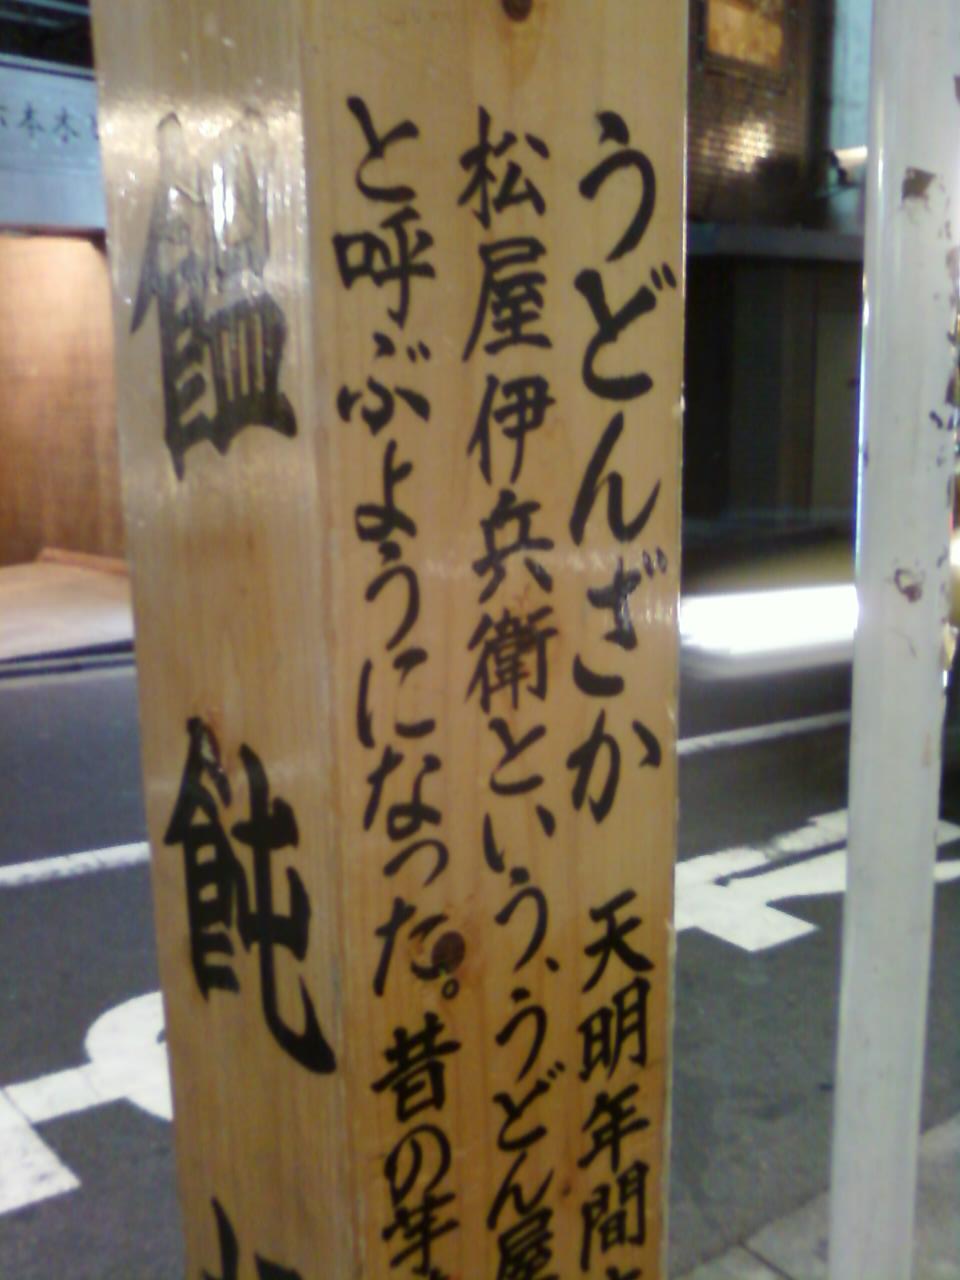 うどんざか 天明年間
松屋伊兵衛という、うどん屋
と呼ぶようになった。昔の芋
饂飩
六本木